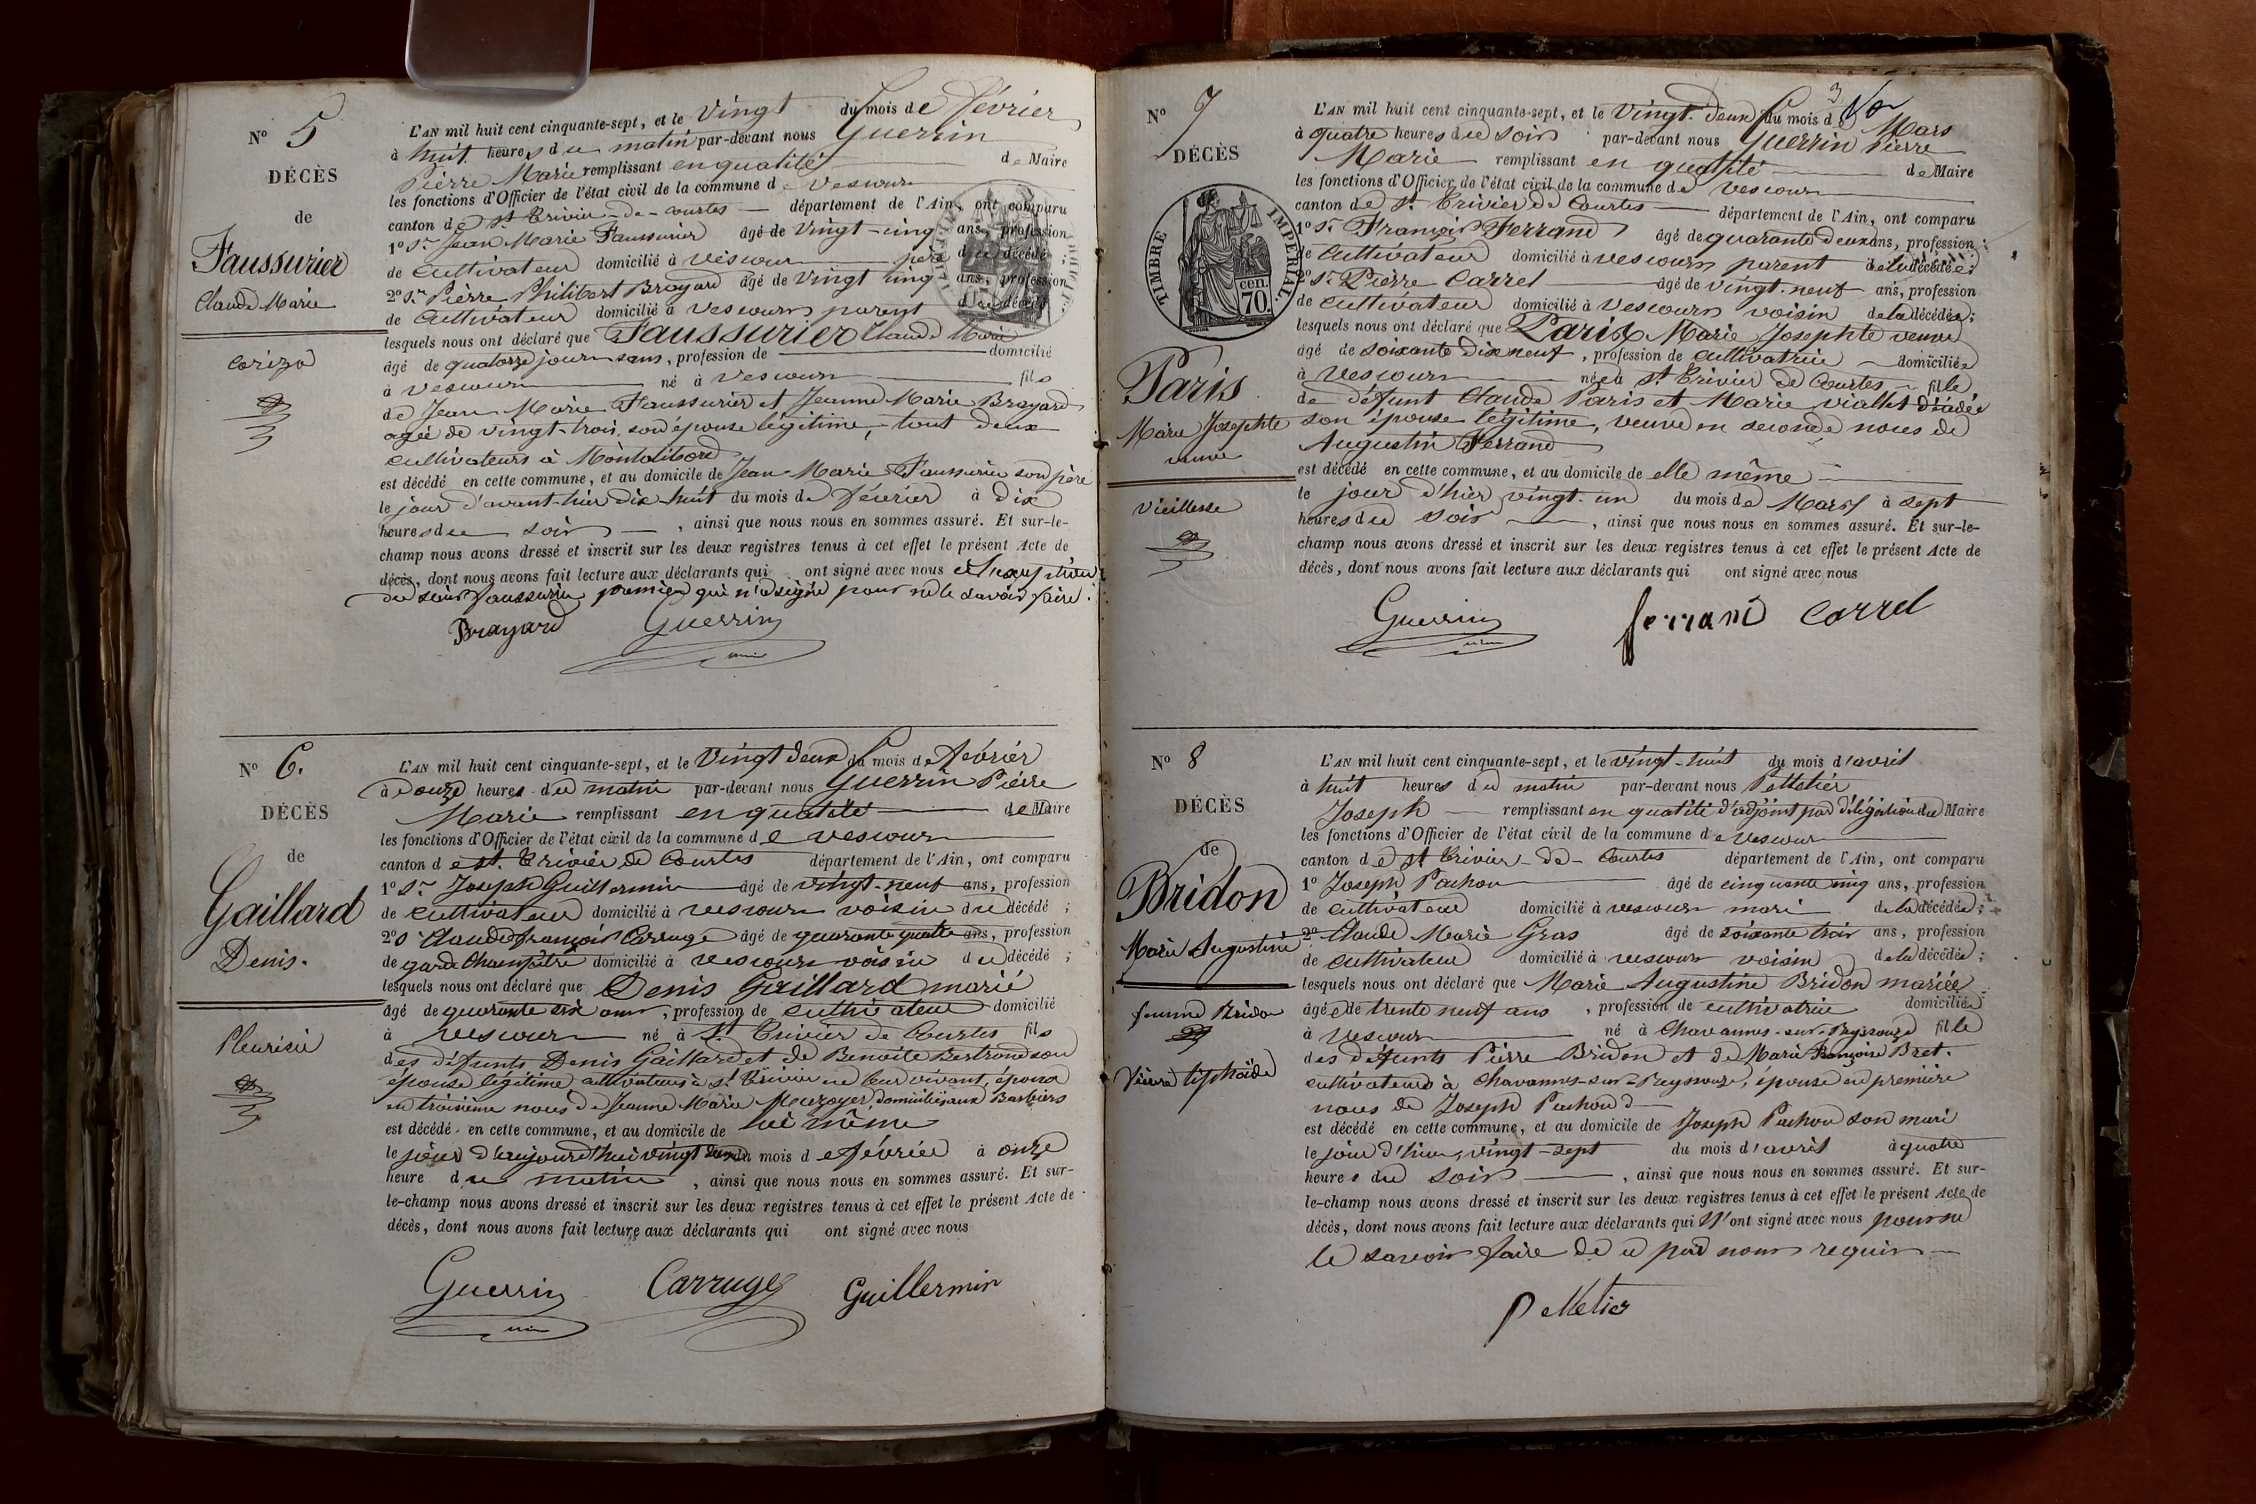 N° 5
DÉCÈS
de
Faussurier
Claude Marie
Corizo
L'AN mil huit cent cinquante-sept, et le Vingt du mois de Février
à huit heures du matin par-devant nous Guerrin
Pierre Marie remplissant en qualité de Maire
les fonctions d'Officier de l'état civil de la commune de Vescours
canton de St Trivier-de-Courtes département de l'Ain, ont comparu
1° Sr Jean Marie Faussurier âgé de vingt-cinq ans, profession
de Cultivateur domicilié à Vescours père du décédé;
2° Sr Pierre Philibert Brayard âgé de Vingt cinq ans, profession
de Cultivateur domicilié à Vescours parent du décédé
lesquels nous ont déclaré que Faussurier Claude Marie
âgé de quatorze jours ans, profession de domicilié
à Vescours né à Vescours fils
de Jean Marie Faussurier et Jeanne Marie Brayard
agée de vingt-trois, son épouse légitime, tout deux
cultivateurs à
est décédé en cette commune, et au domicile de Jean Marie Faussurier son père
le jour d'avant-hier dix-huit du mois de Février à dix
heures du soir, ainsi que nous nous en sommes assuré. Et sur-le-
champ nous avons dressé et inscrit sur les deux registres tenus à cet effet le présent Acte de
décès, dont nous avons fait lecture aux déclarants qui ont signé avec nous
du sieur Faussurier premier qui n'a signé pour ne le savoir faire.
Brayard Guerrin
N° 6.
DÉCÈS
de
Gaillard
Denis.
Pleurisie
L'AN mil huit cent cinquante-sept, et le Vingt deux du mois de Février
à Douze heures du matin par-devant nous Guerrin Pierre
Marie remplissant en qualité de Maire
les fonctions d'Officier de l'état civil de la commune de Vescours
canton de St. Trivier de Courtes département de l'Ain, ont comparu
1° Sr Joseph Guillermin âgé de vingt-neuf ans, profession
de Cultivateur domicilié à Vescours voisin du décédé;
2° S Claude François Carruge âgé de quarante quatre ans, profession
de garde Champêtre domicilié à Vescours voisin du décédé;
lesquels nous ont déclaré que Denis Gaillard marié
âgé de quarante six ans, profession de cultivateur domicilié
à Vescours né à St Trivier de Courtes fils
des défunts Denis Gaillard et de Benoite Bertrand son
épouse légitime cultivateurs à St Trivier de leur vivant, époux
en troisième noces de Jeanne Marie domiciliés aux Barbiers
est décédé en cette commune, et au domicile de lui même
le jour d'aujourd'hui vingt deux du mois de Février à onze
heure du matin, ainsi que nous nous en sommes assuré. Et sur-
le-champ nous avons dressé et inscrit sur les deux registres tenus à cet effet le présent Acte de
décès, dont nous avons fait lecture aux déclarants qui ont signé avec nous
Guerrin Carruge Guillermin
3
N° 7
DÉCÈS
TIMBRE IMPÉRIAL
70 cen.
Paris
Marie Josephte
veuve
Vieillesse
L'AN mil huit cent cinquante-sept, et le Vingt-deux du mois de Mars
à quatre heures du soir par-devant nous Guerrin Pierre
Marie remplissant en qualité de Maire
les fonctions d'Officier de l'état civil de la commune de Vescours
canton de St Trivier de Courtes département de l'Ain, ont comparu
1° Sr François Ferrand âgé de quarante deux ans, profession
de Cultivateur domicilié à Vescours parent de la décédée;
2° Sr Pierre Carrel âgé de vingt-neuf ans, profession
de Cultivateur domicilié à Vescours voisin de la décédée;
lesquels nous ont déclaré que Paris Marie Josephte veuve
âgé de soixante dix neuf, profession de cultivatrice domiciliée
à Vescours née à St Trivier de Courtes fille
de défunt Claude Paris et Marie Viallet
son épouse légitime, veuve en seconde noces de
Augustin Ferrand
est décédé en cette commune, et au domicile de elle même
le jour d'hier vingt-un du mois de Mars à sept
heures du soir, ainsi que nous nous en sommes assuré. Et sur-le-
champ nous avons dressé et inscrit sur les deux registres tenus à cet effet le présent Acte de
décès, dont nous avons fait lecture aux déclarants qui ont signé avec nous
Guerrin ferrand Carrel
N° 8
DÉCÈS
de
Bridon
Marie Augustine
femme
Fièvre typhoïde
L'AN mil huit cent cinquante-sept, et le vingt-huit du mois d'avril
à huit heures du matin par-devant nous Pelletier
Joseph remplissant en qualité d'adjoint par délégation du Maire
les fonctions d'Officier de l'état civil de la commune de Vescours
canton de St Trivier-de-Courtes département de l'Ain, ont comparu
1° Joseph Pachon âgé de cinquante cinq ans, profession
de cultivateur domicilié à Vescours mari de la décédée;
2° Claude Marie Gras âgé de soixante trois ans, profession
de cultivateur domicilié à Vescours voisin de la décédée;
lesquels nous ont déclaré que Marie Augustine Bridon mariée
âgée de trente neuf ans, profession de cultivatrice domiciliée
à Vescours né à Chavannes-sur-Reyssouze fille
des défunts Pierre Bridon et de Marie Françoise Bret.
cultivateurs à Chavannes-sur-Reyssouze, épouse en première
noces de Joseph Pachoud
est décédé en cette commune, et au domicile de Joseph Pachou son mari
le jour d'hier, vingt-sept du mois d'avril à quatre
heures du soir, ainsi que nous nous en sommes assuré. Et sur-
le-champ nous avons dressé et inscrit sur les deux registres tenus à cet effet le présent Acte de
décès, dont nous avons fait lecture aux déclarants qui N'ont signé avec nous pour ne
le savoir faire de ce par nous requis
Pelletier